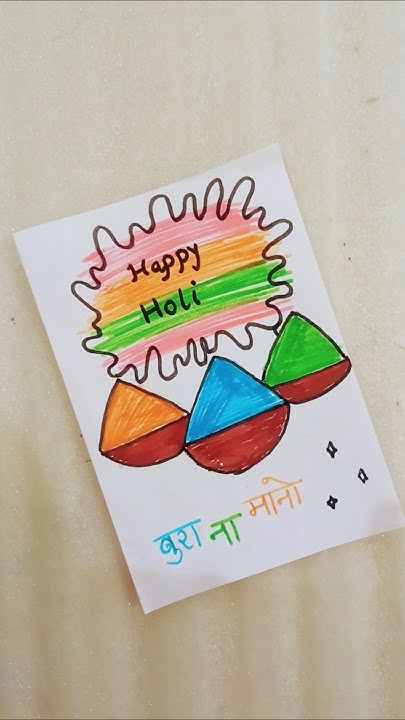 Happy
Holi
बुरा ना मानो